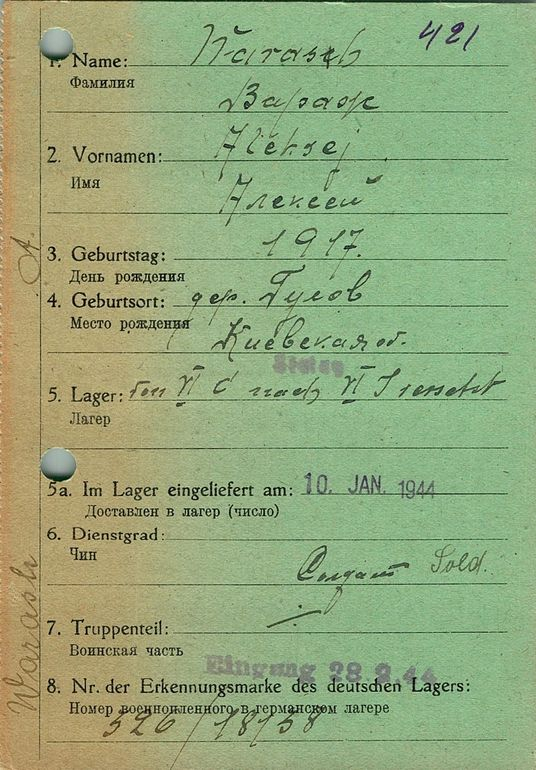 421
1. Name: Warasch
Фамилия
Вараж
2. Vornamen: Aleksej
Имя
Алексей
3. Geburtstag: 1917.
День рождения
4. Geburtsort: дер. Гулов
Место рождения
Киевская об.
Stalag
5. Lager: von VI C nach VI
Лагер
5a. Im Lager eingeliefert am: 10. JAN. 1944
Доставлен в лагер (число)
6. Dienstgrad:
Чин
Солдат Sold.
7. Truppenteil:
Воинская часть
Eingung 28.2.44
8. Nr. der Erkennungsmarke des deutschen Lagers:
Номер военнопленного в германском лагере
326/18158
Warash A.